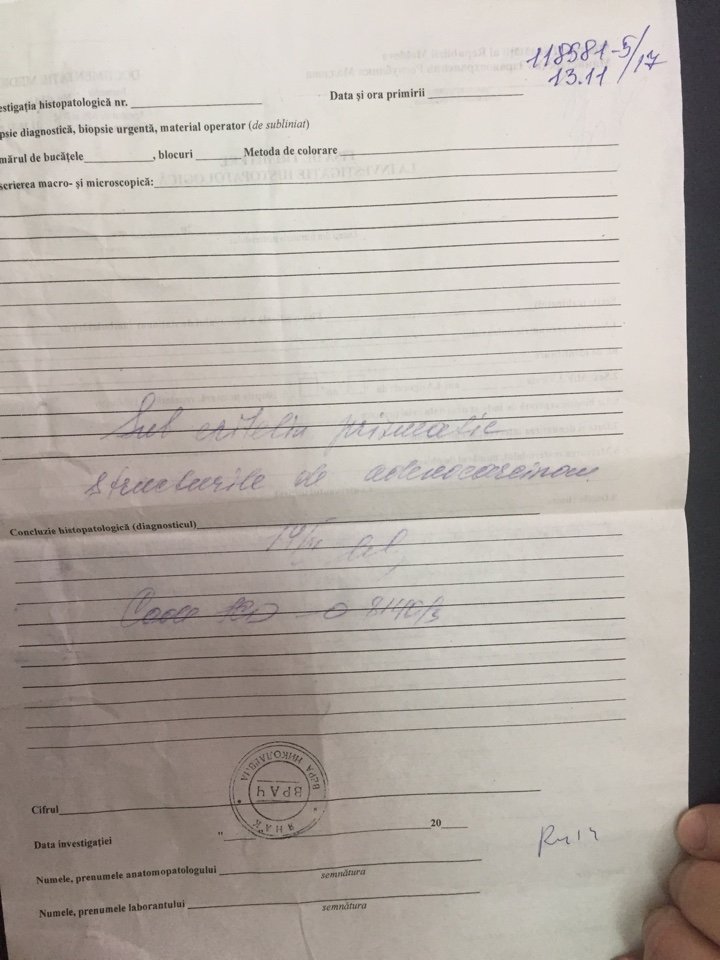 118981-5/17
13.11
estigația histopatologică nr.
Data și ora primirii
psie diagnostică, biopsie urgentă, material operator (de subliniat)
mărul de bucățele, blocuri Metoda de colorare
scrierea macro- și microscopică:
Sub epiteliu prismatic
structurile de adenocarcinom
Concluzie histopatologică (diagnosticul)
Cod ICD-O 8140/3
ВЕРА НИКОЛАЕВНА
ВРАЧ
Cifrul
Data investigației " 20
Numele, prenumele anatomopatologului
semnătura
Numele, prenumele laborantului
semnătura